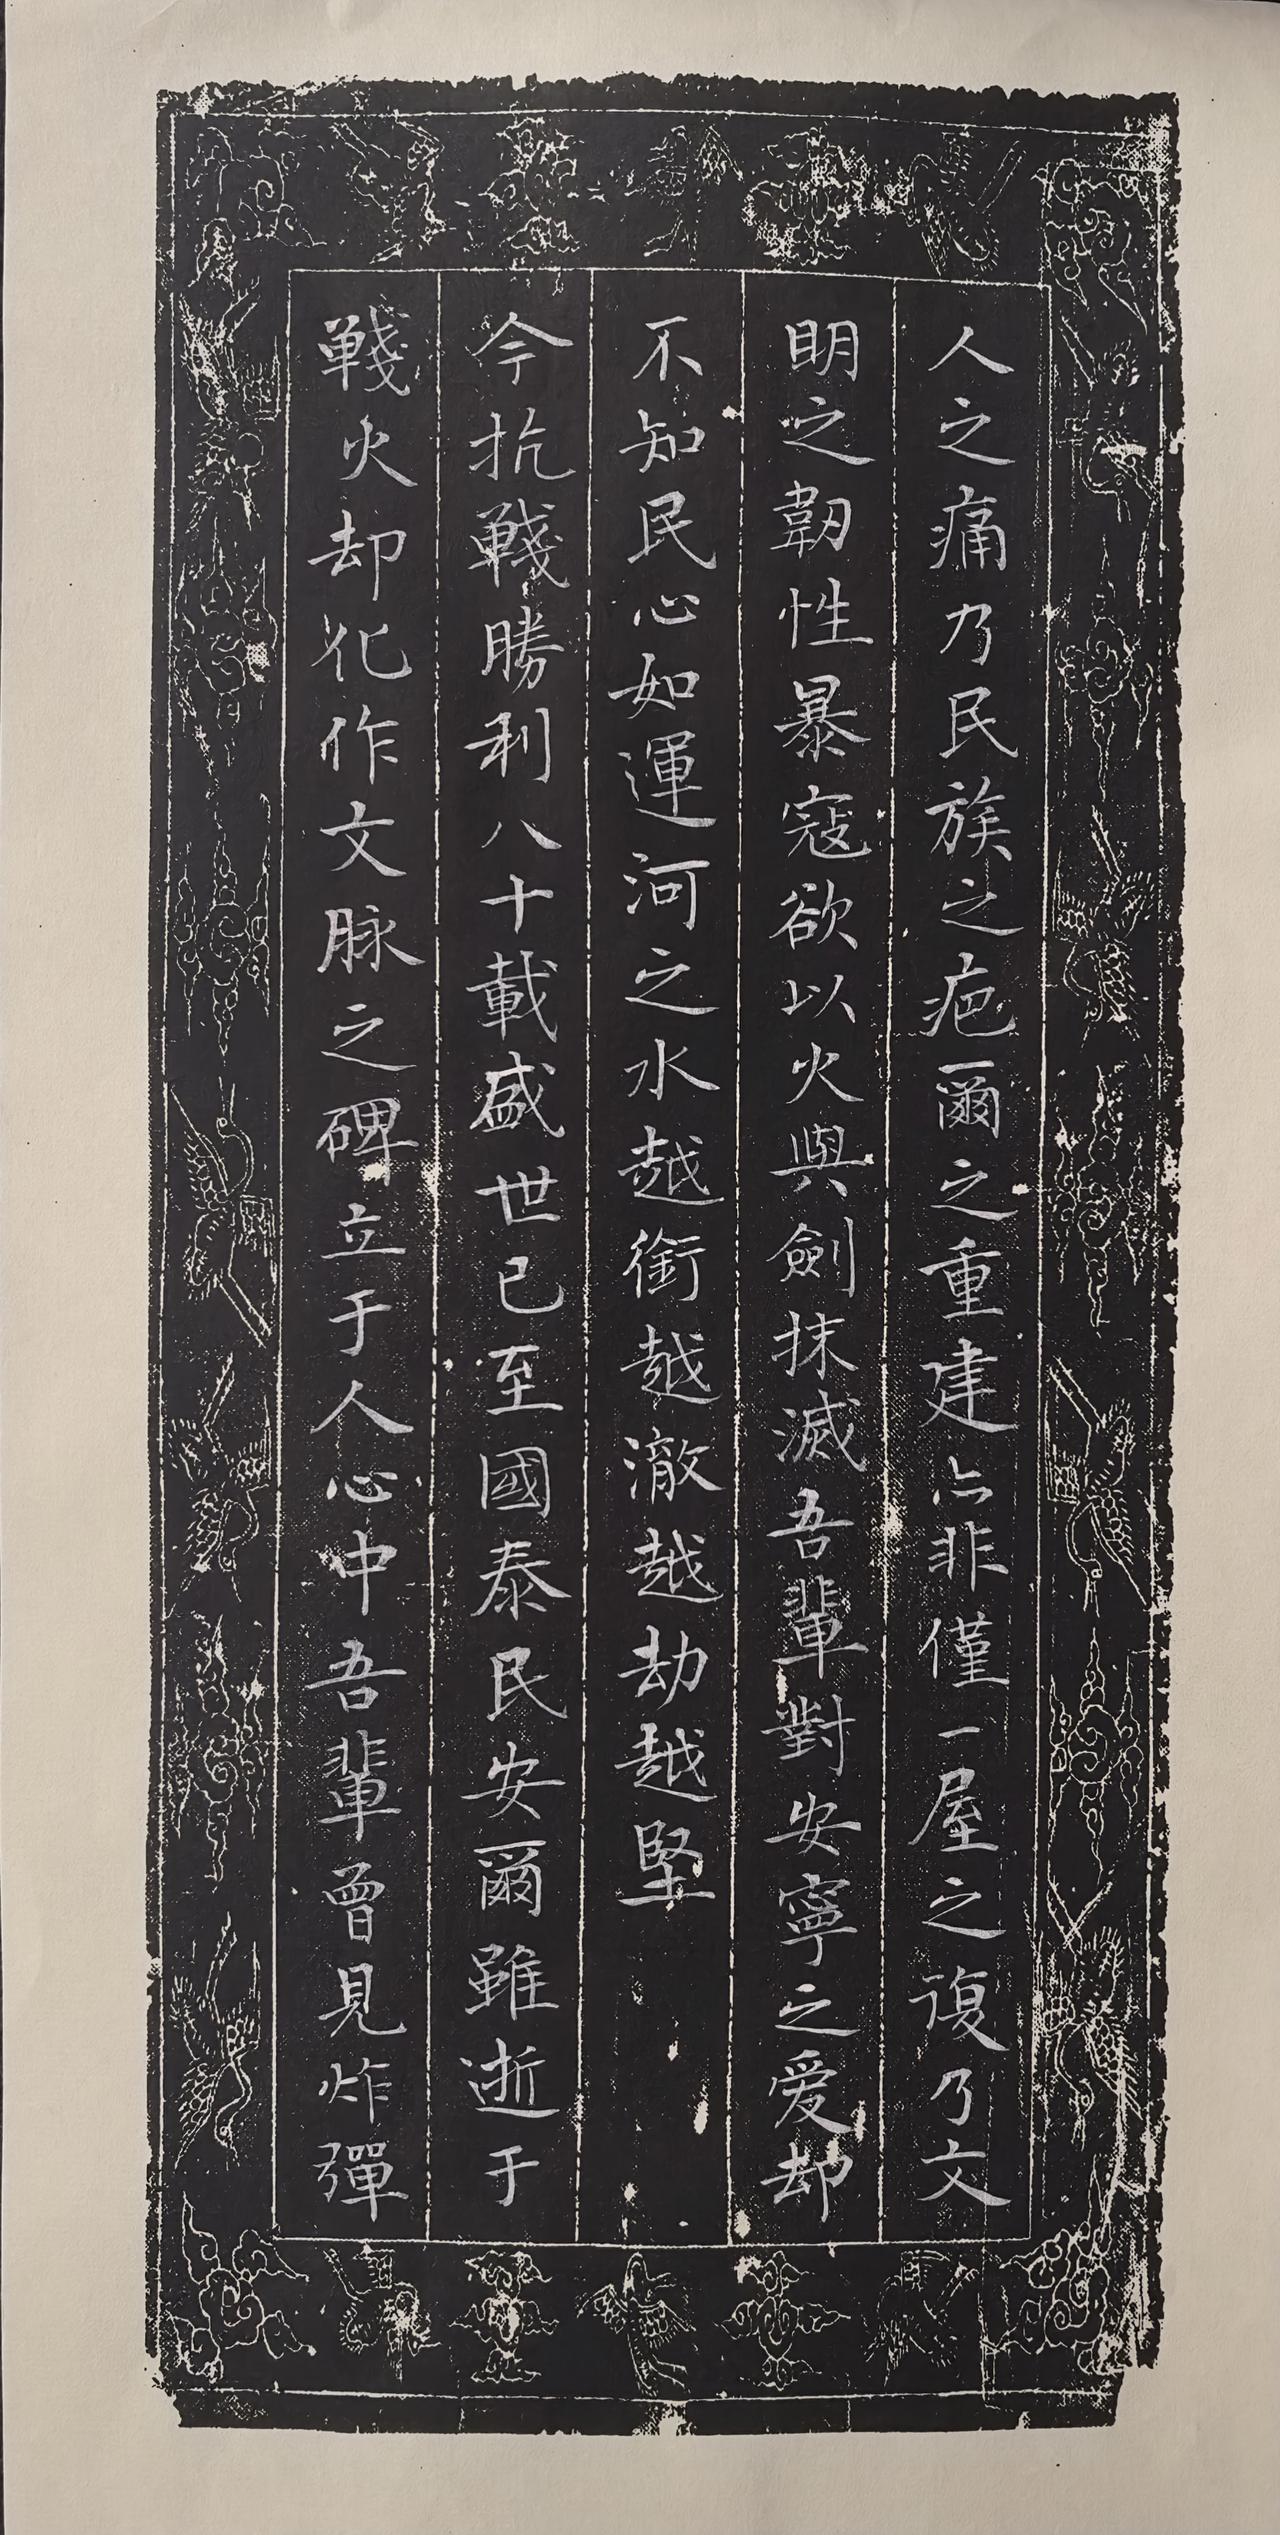 人之痛乃民族之疤爾之重建亦非僅一屋之復乃文
明之韌性暴寇欲以火與劍抹滅吾輩對安寧之愛却
不知民心如運河之水越銜越澈越劫越堅
今抗戰勝利八十載盛世已至國泰民安爾雖逝于
戰火却化作文脉之碑立于人心中吾輩曾見炸彈